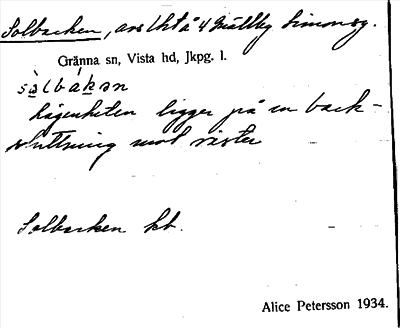 Solbacken, avs lht å 4 Mällby Simonsg.
Gränna sn, Vista hd, Jkpg. l.
sòlbákən
Lägenheten ligger på en back-
sluttning mot väster
Solbacken kb.
Alice Petersson 1934.